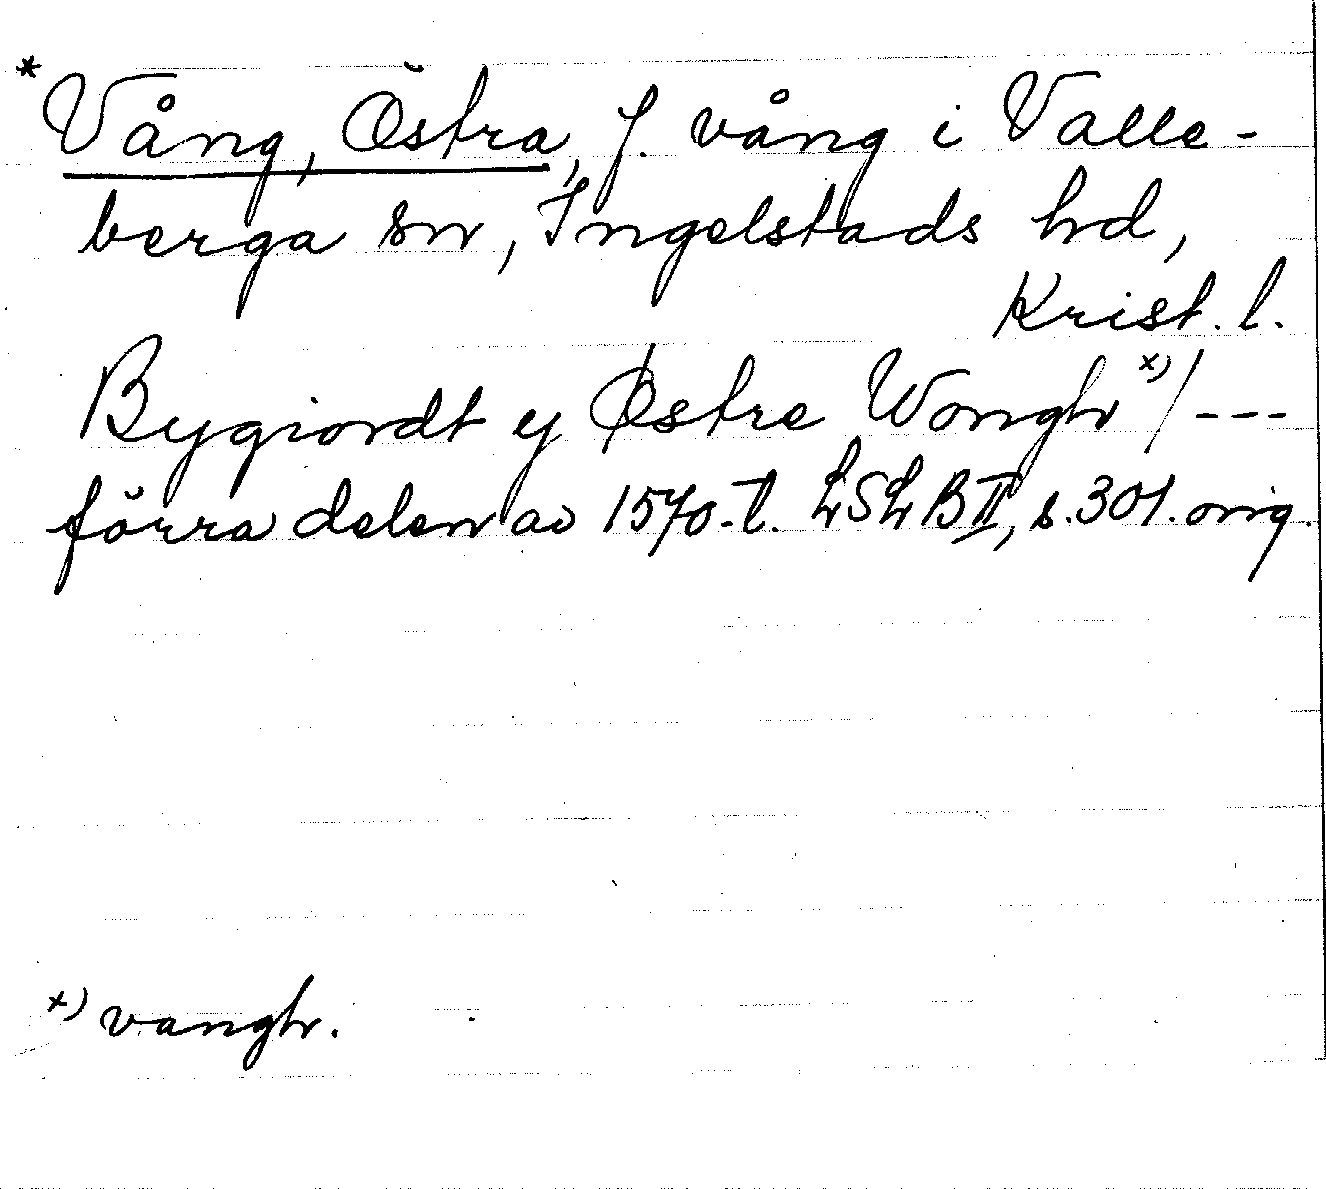 * Vång, Östra, f. vång i Valle-
berga sn, Ingelstads hd,
Krist. l.
Bygiordt y Østre Wongh x) / ---
förra delen av 1570-t. LSLB II, s. 301. orig.
x) vangh.